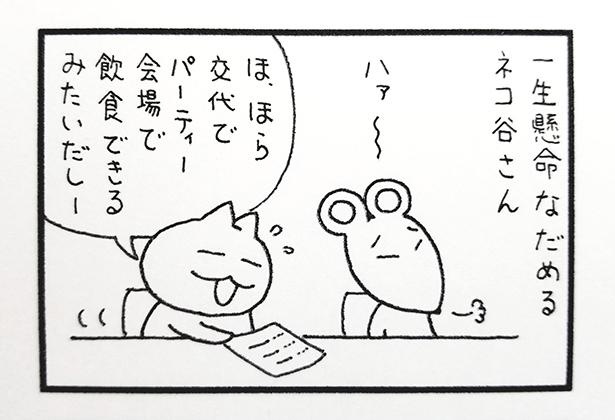 一生懸命なだめる
ネコ谷さん
ハァ〜
ほ、ほら
交代で
パーティー
会場で
飲食できる
みたいだしー